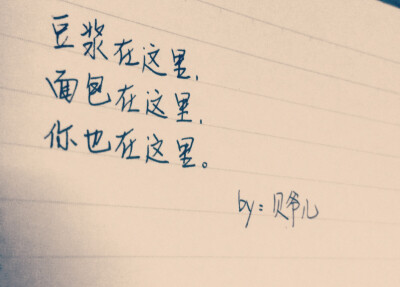 豆浆在这里,
面包在这里,
你也在这里。
by:贝爷儿